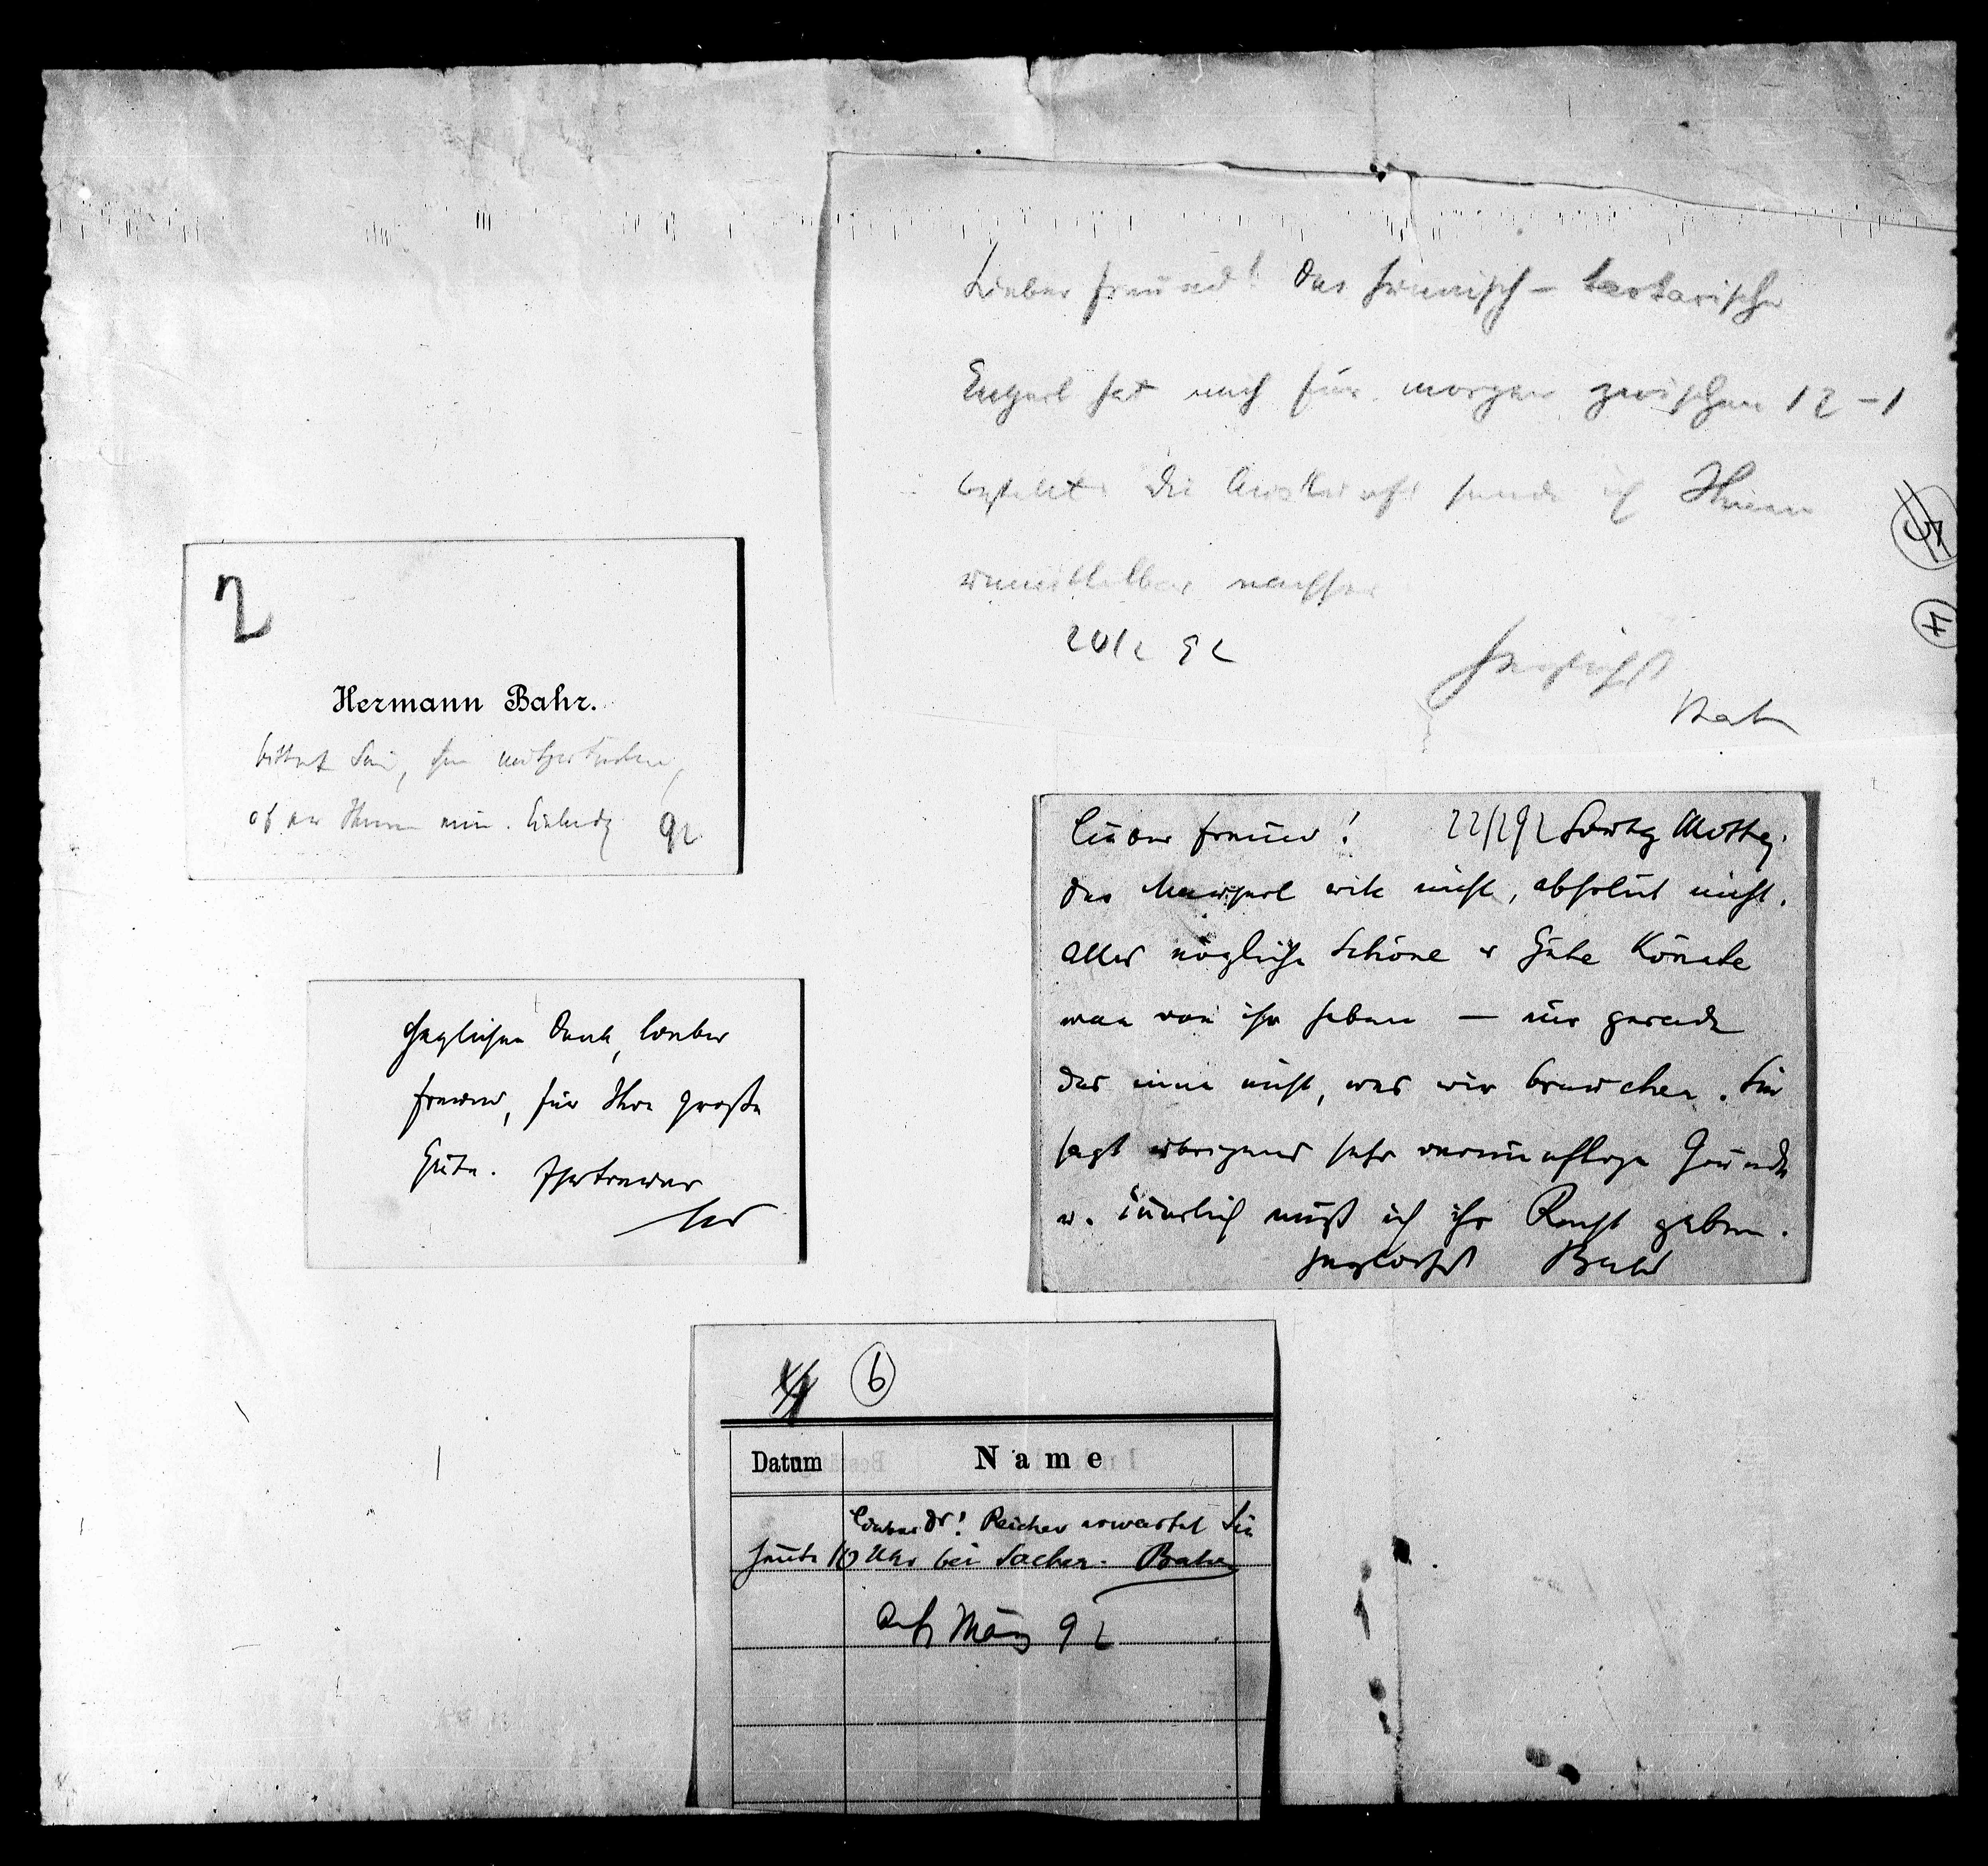 Lieber Freund! Das finnisch-tartarische
Engerl hat mich für morgen zwischen 12–1
bestellt. Die Auskunft sende ich Ihnen
unmittelbar nachher
20/2 92
Herzlichst
Bahr
2
Hermann Bahr.
bittet Sie, ihm mitzutheilen,
ob er Ihnen eine Einladg
92
Lieber Freund! 22/2 92 Montag.
Das Mauserl will nicht, absolut nicht.
Alles mögliche Schöne u Gute könnte
man von ihr haben — nur gerade
das eine nicht, was wir brauchen. Sie
sagt übrigens sehr vernünftige Gründe
u. innerlich muß ich ihr Recht geben.
Herzlichst Bahr
Herzlichen Dank, lieber
Freund, für Ihre große
Güte. Ihr treuer
6
Datum Name
Lieber Dr! Reicher erwartet Sie
heute 10 Uhr bei Sacher. Bahr
Anf März 92